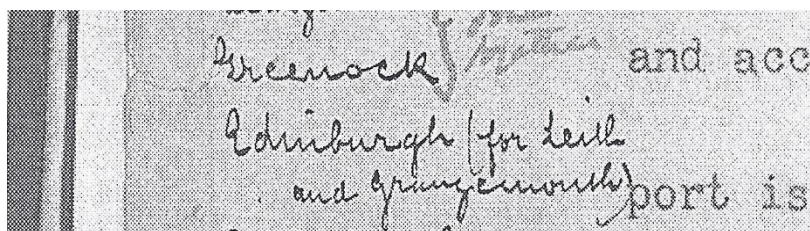 Greenock
and acc
Edinburgh (for Leith
and Grangemouth)
port is